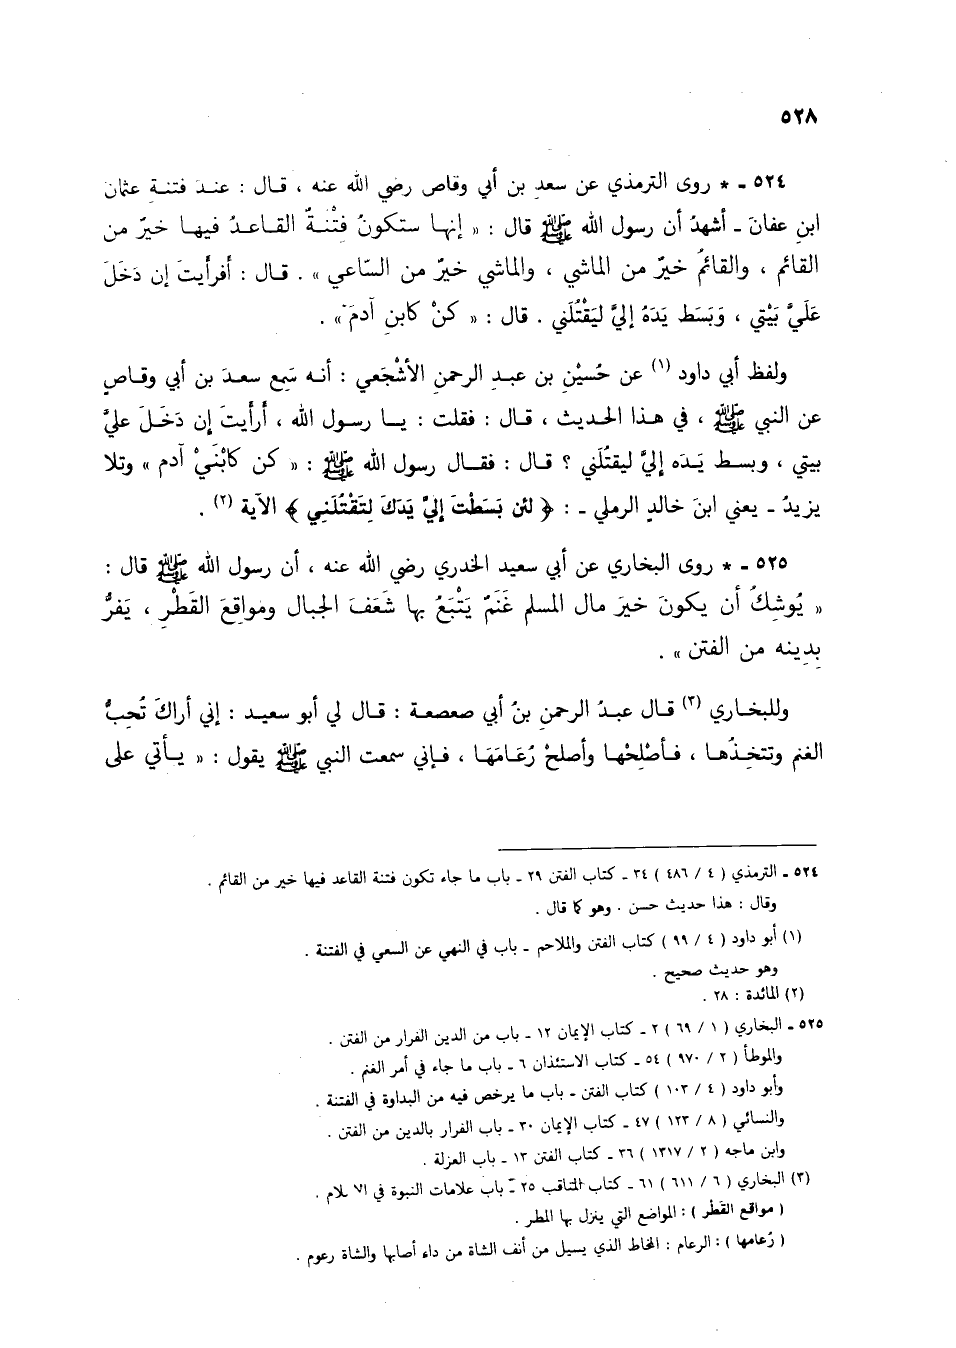 ٥٢٨
٥٢٤ ـ * روى الترمذي عن سعدِ بن أبي وقاص رضي الله عنه ، قـال : عنـدَ فتنـةِ عثمانَ
ابنِ عفانَ ـ أشهدُ أن رسول الله ﷺ قال : « إنهـا ستكونُ فِتْنـةٌ القـاعـدُ فيهـا خيرٌ من
القائم ، والقائمُ خيرٌ من الماشي ، والماشي خيرٌ من السّاعي » . قـال : أفرأيتَ إن دَخَلَ
عَلَيَّ بَيْتي ، وَبَسَط يَدَهُ إليَّ ليَقْتُلَني . قال : « كنْ كابنِ آدمَ » .
ولفظ أبي داود (١) عن حُسَيْنِ بن عبـدِ الرحمنِ الأشْجَعي : أنـه سَمِع سعـدَ بن أبي وقـاص
عن النبي ﷺ ، في هـذا الحـديث ، قـال : فقلت : يــا رسـول الله ، أرأيتَ إن دَخَـلَ عليَّ
بيتي ، وبسـط يَـدَه إليَّ ليقتُلَني ؟ قـال : فقـال رسول الله ﷺ : « كن كابْنَيْ آدم » وتلا
يزيدُ ـ يعني ابنَ خالدٍ الرملي ـ : ﴿ لئن بَسَطْتَ إليَّ يَدَكَ لِتَقْتُلَنِي ﴾ الآية (٢) .
٥٢٥ ـ * روى البخاري عن أبي سعيد الخدري رضي الله عنه ، أن رسول الله ﷺ قال :
« يُوشِكُ أن يكونَ خيرَ مال المسلم غَنَمٌ يَتْبَعُ بها شَعَفَ الجبال ومواقِعَ القَطْرِ ، يَفرُّ
بِدِينِه من الفتن » .
وللبخـاري (٣) قـال عبـدُ الرحمنِ بنُ أبي صعصعة : قـال لي أبو سعيـد : إني أراكَ تُحِبُّ
الغنم وتتخِـذُهـا ، فـأصْلِحْهـا وأصلحْ رُعَـامَهَـا ، فـإني سمعت النبي ﷺ يقول : « يـأتي على
٥٢٤ ـ الترمذي ( ٤ / ٤٨٦ ) ٣٤ ـ كتاب الفتن ٢٩ ـ باب ما جاء تكون فتنة القاعد فيها خير من القائم .
وقال : هذا حديث حسن . وهو كما قال .
(١) أبو داود ( ٤ / ٩٩ ) كتاب الفتن والملاحم ـ باب في النهي عن السعي في الفتنة .
وهو حديث صحيح .
(٢) المائدة : ٢٨ .
٥٢٥ ـ البخاري ( ١ / ٦٩ ) ٢ ـ كتاب الإيمان ١٢ ـ باب من الدين الفرار من الفتن .
والموطأ ( ٢ / ٩٧٠ ) ٥٤ ـ كتاب الاستئذان ٦ ـ باب ما جاء في أمر الغنم .
وأبو داود ( ٤ / ١٠٣ ) كتاب الفتن ـ باب ما يرخص فيه من البداوة في الفتنة .
والنسائي ( ٨ / ١٢٣ ) ٤٧ ـ كتاب الإيمان ٣٠ ـ باب الفرار بالدين من الفتن .
وابن ماجه ( ٢ / ١٣١٧ ) ٣٦ ـ كتاب الفتن ١٣ ـ باب العزلة .
(٣) البخاري ( ٦ / ٦١١ ) ٦١ ـ كتاب المناقب ٢٥ ـ باب علامات النبوة في
( مواقع القَطْر ) : المواضع التي ينزل بها المطر .
( رُعامها ) : الرعام : المخاط الذي يسيل من أنف الشاة من داء أصابها والشاة رعوم .